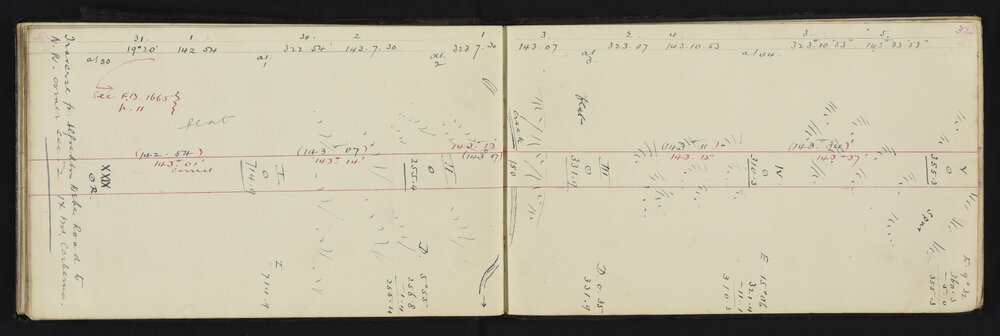 31.
1
19° 20'
142.54
at 30
See F.B. 1665
p. 11
flat
(142.54)
143° 01'
correct
XXIX
O R.
Traverse fr Alfredton Weber Road to
N.W. corner Sec 2
IX
30.
2
322.54'
143.7.30
at
1
(143° 07')
143° 14'
I
O
714.9
I
714.9
323.7.30
at
2
143.13
(143.07)
II
O
255.4
D. 5°55'
256.8
-1.4
255.4
32
3.
143.07
at
3
check
150
III
O
331.9
D 0.35
331.9
2.
4.
323.07
143.10.53
at 04.
(143° 11')
143.15'
IV
O
310.3
E 15°06
321.4
-11.1
310.3
3.
5.
323°10'53"
143°33'53"
(143° 34')
143°37'
V
O
355.3
Spur
E 9°32
360.3
-5.0
355.3